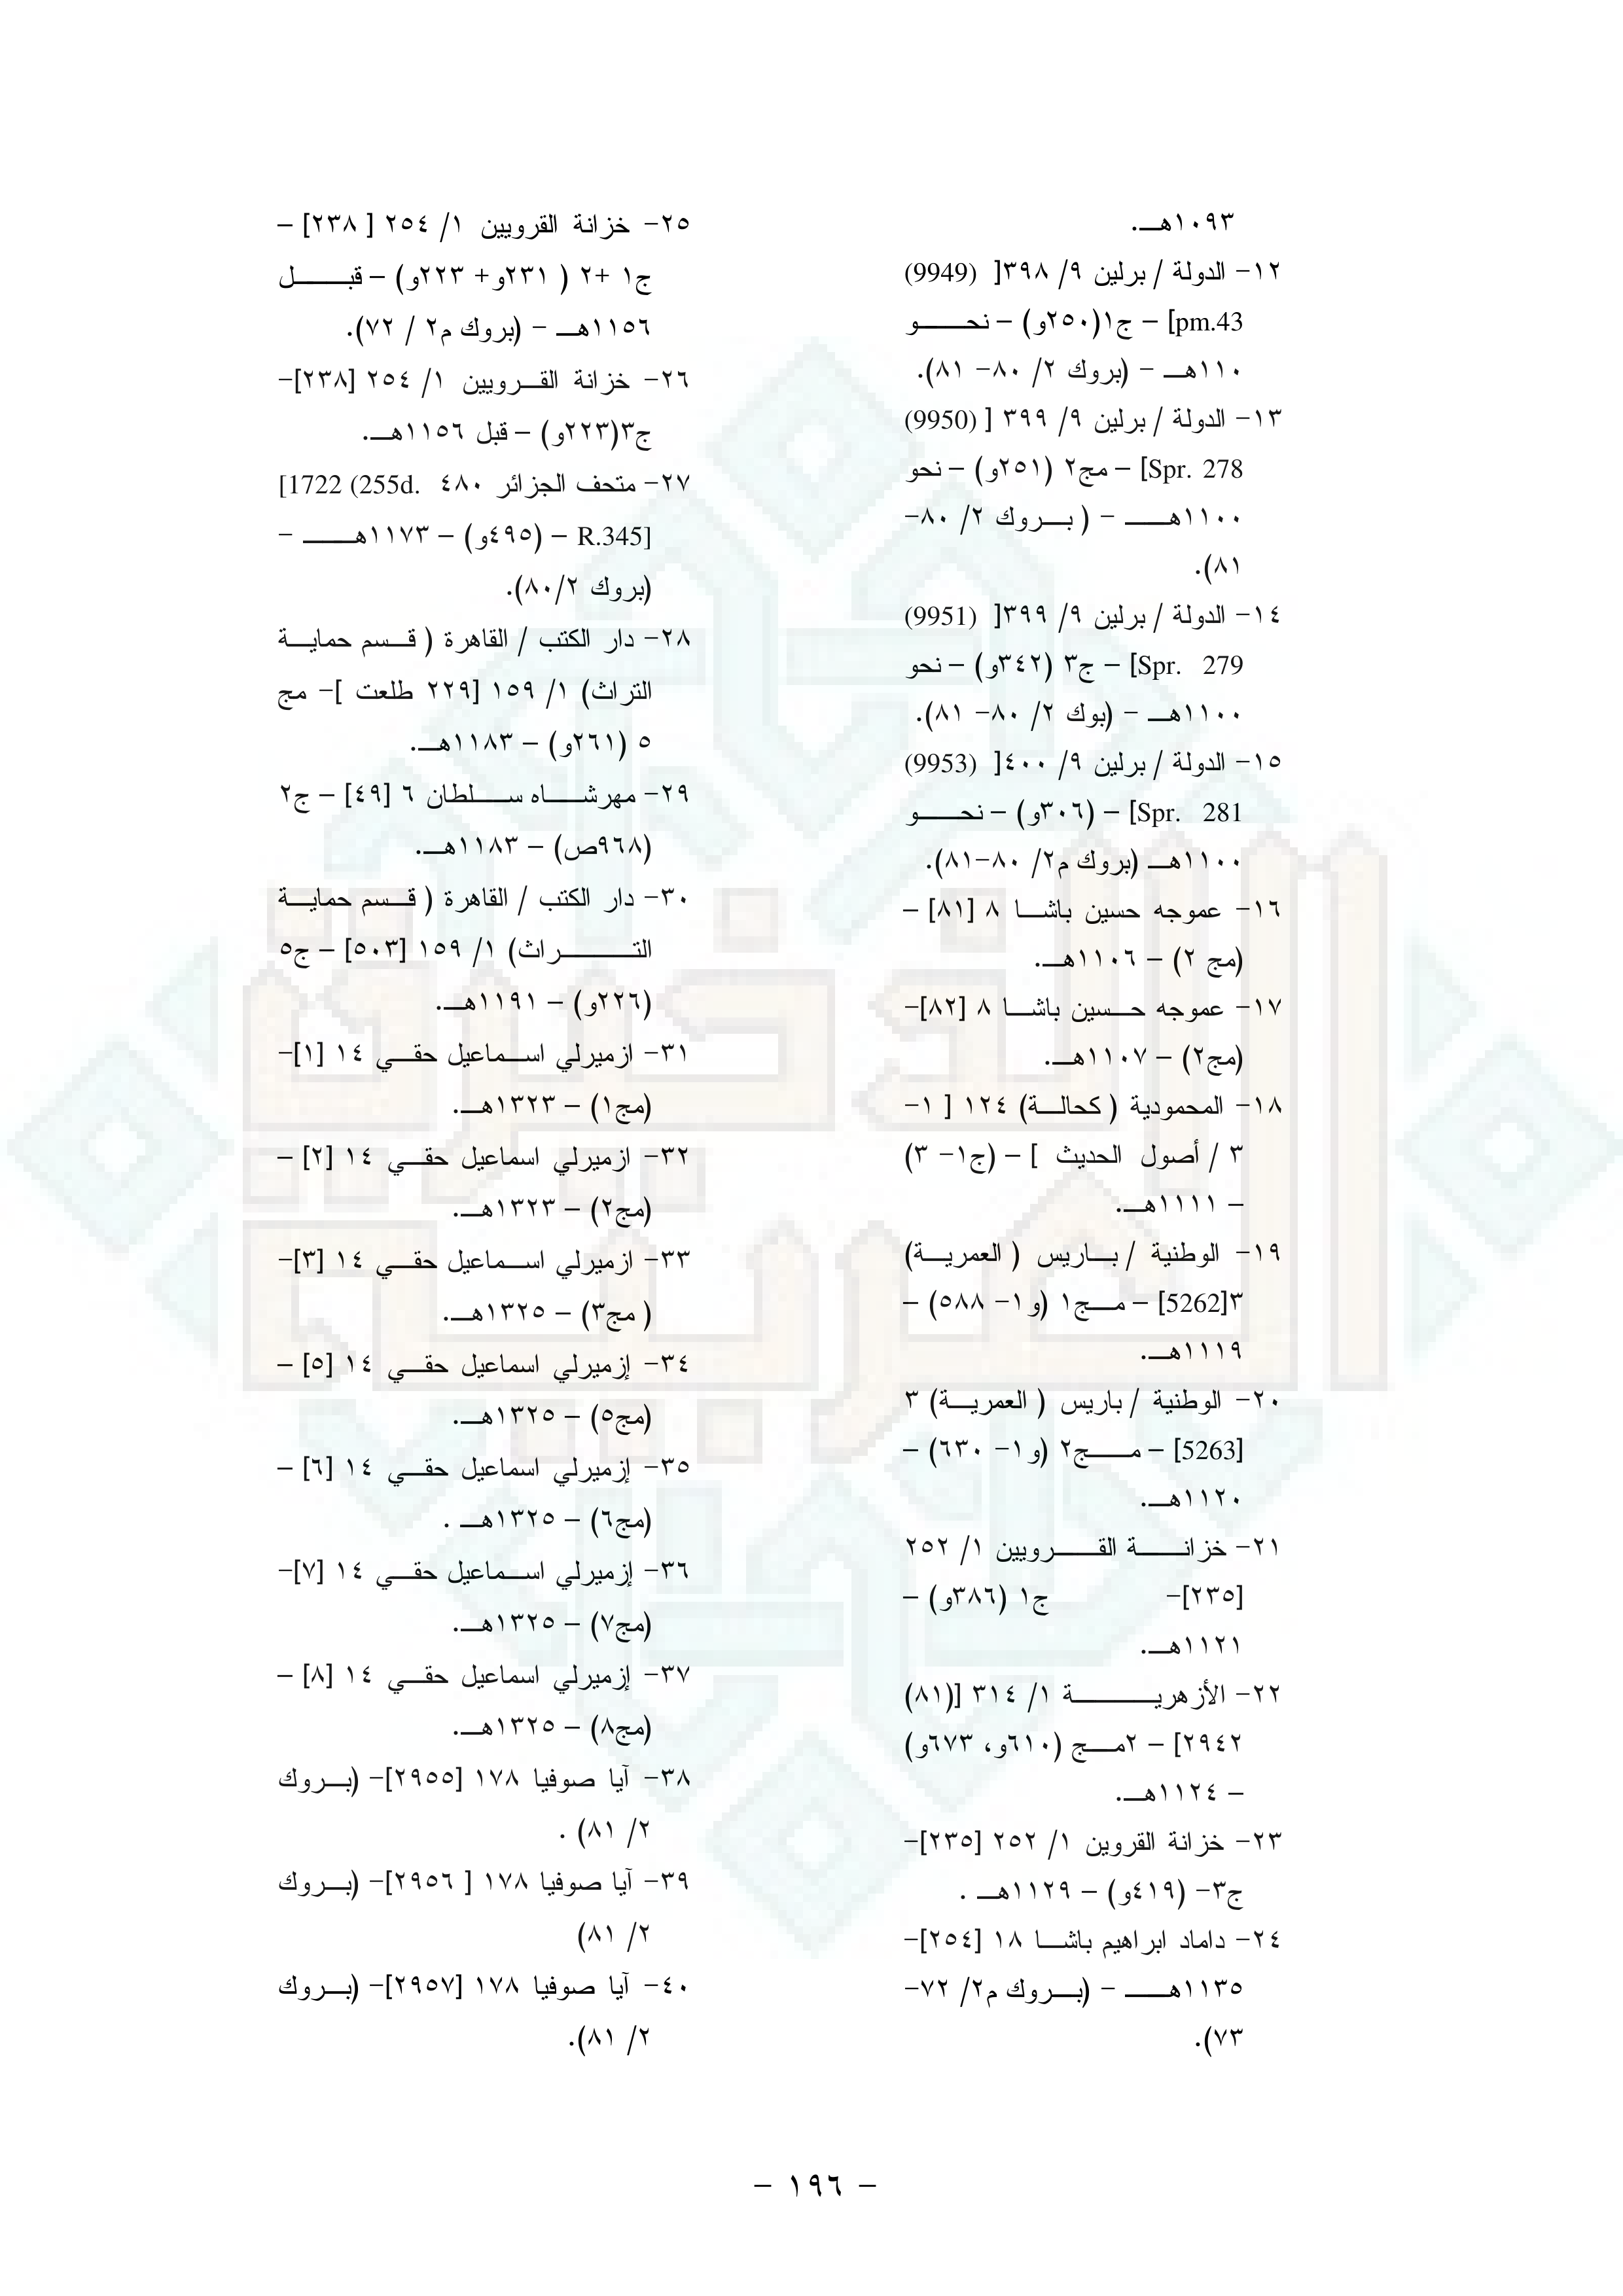 ١٠٩٣هـ.
١٢- الدولة / برلين ٩/ ٣٩٨[ (9949)
pm.43] – ج١(٢٥٠و) – نحو
١١٠هـ - (بروك ٢/ ٨٠- ٨١).
١٣- الدولة / برلين ٩/ ٣٩٩ [ (9950)
Spr. 278] – مج٢ (٢٥١و) – نحو
١١٠٠هـ - ( بروك ٢/ ٨٠-
٨١).
١٤- الدولة / برلين ٩/ ٣٩٩[ (9951)
Spr. 279] – ج٣ (٣٤٢و) – نحو
١١٠٠هـ - (بوك ٢/ ٨٠- ٨١).
١٥- الدولة / برلين ٩/ ٤٠٠[ (9953)
Spr. 281] – (٣٠٦و) – نحو
١١٠٠هـ (بروك م٢/ ٨٠-٨١).
١٦- عموجه حسين باشا ٨ [٨١] –
(مج ٢) – ١١٠٦هـ.
١٧- عموجه حسين باشا ٨ [٨٢]-
(مج٢) – ١١٠٧هـ.
١٨- المحمودية ( كحالة) ١٢٤ [ ١-
٣ / أصول الحديث ] – (ج١- ٣)
– ١١١١هـ.
١٩- الوطنية / باريس ( العمرية)
٣[5262] – مج١ (و١- ٥٨٨) –
١١١٩هـ.
٢٠- الوطنية / باريس ( العمرية) ٣
[5263] – مج٢ (و١- ٦٣٠) –
١١٢٠هـ.
٢١- خزانة القرويين ١/ ٢٥٢
[٢٣٥]- ج١ (٣٨٦و) –
١١٢١هـ.
٢٢- الأزهرية ١/ ٣١٤ [(٨١)
٢٩٤٢] – ٢مج (٦١٠و، ٦٧٣و)
– ١١٢٤هـ.
٢٣- خزانة القروين ١/ ٢٥٢ [٢٣٥]-
ج٣- (٤١٩و) – ١١٢٩هـ .
٢٤- داماد ابراهيم باشا ١٨ [٢٥٤]-
١١٣٥هـ - (بروك م٢/ ٧٢-
٧٣).
٢٥- خزانة القرويين ١/ ٢٥٤ [ ٢٣٨] –
ج١ +٢ ( ٢٣١و+ ٢٢٣و) – قبل
١١٥٦هـ - (بروك م٢ / ٧٢).
٢٦- خزانة القرويين ١/ ٢٥٤ [٢٣٨]-
ج٣(٢٢٣و) – قبل ١١٥٦هـ.
٢٧- متحف الجزائر ٤٨٠ [1722 (255d.
R.345] – (٤٩٥و) – ١١٧٣هـ -
(بروك ٢/ ٨٠).
٢٨- دار الكتب / القاهرة ( قسم حماية
التراث) ١/ ١٥٩ [٢٢٩ طلعت ]- مج
٥ (٢٦١و) – ١١٨٣هـ.
٢٩- مهرشاه سلطان ٦ [٤٩] – ج٢
(٩٦٨ص) – ١١٨٣هـ.
٣٠- دار الكتب / القاهرة ( قسم حماية
التراث) ١/ ١٥٩ [٥٠٣] – ج٥
(٢٢٦و) – ١١٩١هـ.
٣١- ازميرلي اسماعيل حقي ١٤ [١]-
(مج١) – ١٣٢٣هـ.
٣٢- ازميرلي اسماعيل حقي ١٤ [٢] –
(مج٢) – ١٣٢٣هـ.
٣٣- ازميرلي اسماعيل حقي ١٤ [٣]-
( مج٣) – ١٣٢٥هـ.
٣٤- إزميرلي اسماعيل حقي ١٤ [٥] –
(مج٥) – ١٣٢٥هـ.
٣٥- إزميرلي اسماعيل حقي ١٤ [٦] –
(مج٦) – ١٣٢٥هـ .
٣٦- إزميرلي اسماعيل حقي ١٤ [٧]-
(مج٧) – ١٣٢٥هـ.
٣٧- إزميرلي اسماعيل حقي ١٤ [٨] –
(مج٨) – ١٣٢٥هـ.
٣٨- آيا صوفيا ١٧٨ [٢٩٥٥]- (بروك
٢/ ٨١) .
٣٩- آيا صوفيا ١٧٨ [ ٢٩٥٦]- (بروك
٢/ ٨١)
٤٠- آيا صوفيا ١٧٨ [٢٩٥٧]- (بروك
٢/ ٨١).
– ١٩٦ –
الذخيرة
العربية